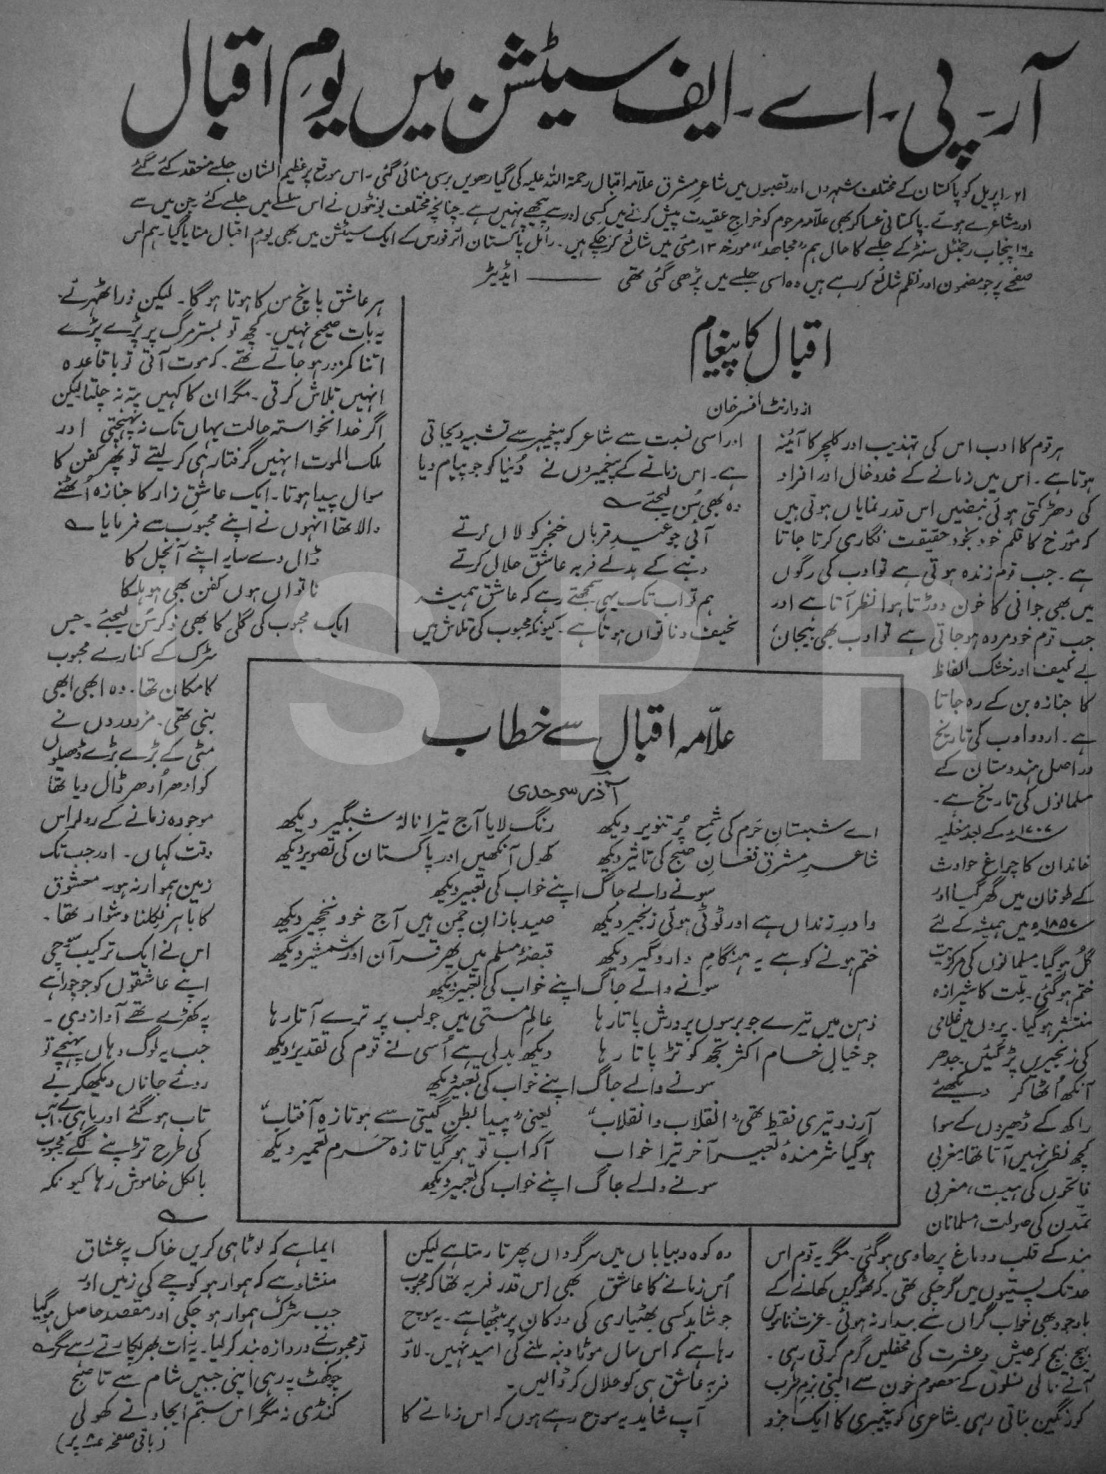 آر۔ پی۔ اے۔ ایف سیٹشن میں یومِ اقبال
۲۱؍ اپریل کو پاکستان کے مختلف شہروں اور قصبوں میں شاعرِ مشرق علامہ اقبال رحمۃ اللہ علیہ کی گیارھویں برسی منائی گئی۔ اس موقع پر عظیم الشان جلسے منعقد کئے گئے
اور مشاعرے ہوئے۔ پاکستانی عساکر بھی علامہ مرحوم کو خراجِ عقیدت پیش کرنے میں کسی اور سے پیچھے نہیں رہے۔ چنانچہ مختلف یونٹوں نے اس سلسلے میں جلسے کئے جن میں سے
۱۶ پنجاب رجمنٹل سنٹر کے جلسے کا حال ہم "مجاہد" مورخہ ۳ ارمئی میں شائع کر چکے ہیں۔ رائل پاکستان ائر فورس کے ایک سیٹشن میں بھی یوم اقبال منایا گیا۔ ہم اس
صفحے پر جو مضمون اور نظم شائع کر رہے ہیں وہ اسی جلسے میں پڑھی گئی تھی ——— ایڈیٹر
اقبال کا پیغام
از وارنٹ افسر خان
ہر قوم کا ادب اس کی تہذیب اور کلچر کا آئینہ
ہوتا ہے۔ اس میں زمانے کے خدوخال اور افراد
کی دھڑکتی ہوئی نبضیں اس قدر نمایاں ہوتی ہیں
کہ مؤرخ کا قلم خود بخود حقیقت نگاری کرتا جاتا
ہے۔ جب قوم زندہ ہوتی ہے تو ادب کی رگوں
میں بھی جوانی کا خون دوڑتا ہوا نظر آتا ہے اور
جب قوم خود مردہ ہو جاتی ہے تو ادب بھی بیجان،
بے کیف اور خشک الفاظ
کا جنازہ بن کے رہ جاتا
ہے۔ اردو ادب کی تاریخ
دراصل ہندوستان کے
مسلمانوں کی تاریخ ہے۔
۱۷۰۷ء کے بعد مغلیہ
خاندان کا چراغ حوادث
کے طوفان میں گھر گیا اور
۱۸۵۷ء میں ہمیشہ کے لئے
گل ہو گیا۔ مسلمانوں کی مرکزیت
ختم ہو گئی۔ ملت کا شیرازہ
منتشر ہو گیا۔ پروں میں غلامی
کی زنجیریں پڑ گئیں جدھر
آنکھ اُٹھا کر دیکھئے
راکھ کے ڈھیروں کے سوا
کچھ نظر نہیں آتا تھا مغربی
فاتحوں کی ہیبت، مغربی
تمدن کی صولت، مسلمانان
ہند کے قلب و دماغ پر حاوی ہو گئی۔ مگر یہ قوم اس
حد تک پستیوں میں گر چکی تھی۔ کہ ٹھوکریں کھانے کے
باوجود بھی خواب گراں سے بیدار نہ ہوئی۔ عزت ناموس
بیچ بیچ کر عیش و عشرت کی محفلیں گرم کرتی رہی۔
آنے والی نسلوں کے معصوم خون سے اپنی بزمِ طرب
کو رنگین بناتی رہی۔ شاعری کو پیغمبری کا ایک جزو
اور اسی نسبت سے شاعر کو پیغمبر سے تشبیہ دیجاتی
ہے۔ اس زمانے کے پیغمبروں نے دُنیا کو جو پیام دیا
وہ بھی سُن لیجئے ؎
آئی جو عیدِ قرباں خنجر کو لال کرتے
دنبے کے بدلے فربہ عاشق حلال کرتے
ہم تو اب تک یہی سمجھتے رہے کہ عاشق ہمیشہ
نحیف و ناتواں ہوتا ہے۔ کیونکہ محبوب کی تلاش میں
وہ کوہ و بیاباں میں سرگرداں پھرتا رہتا ہے لیکن
اُس زمانے کا عاشق بھی اس قدر فربہ تھا کہ محبوب
جو شاید کسی بھٹیاری کی دوکان پر بیٹھا ہے۔ یہ سوچ
رہا ہے کہ اس سال موٹا دنبہ ملنے کی امید نہیں۔ لاؤ
فربہ عاشق ہی کو حلال کر ڈالیں۔
آپ شاید یہ سوچ رہے ہوں کہ اس زمانے کا
ہر عاشق پانچ من کا ہوتا ہو گا۔ لیکن ذرا ٹھہرئیے
یہ بات صحیح نہیں۔ کچھ تو بستر مرگ پر پڑے پڑے
اتنا کمزور ہو جاتے تھے۔ کہ موت آتی تو باقاعدہ
انہیں تلاش کرتی۔ مگر ان کا کہیں پتہ نہ چلتا لیکن
اگر خدانخواستہ حالت یہاں تک نہ پہنچتی اور
ملک الموت انہیں گرفتار ہی کر لیتے تو پھر کفن کا
سوال پیدا ہوتا۔ ایک عاشقِ زار کا جنازہ اُٹھنے
والا تھا انہوں نے اپنے محبوب سے فرمایا ؎
ڈال دے سایہ اپنے آنچل کا
ناتواں ہوں کفن بھی ہو ہلکا
ایک محبوب کی گلی کا بھی ذکر سُن لیجئے۔ جس
سڑک کے کنارے محبوب
کا مکان تھا۔ وہ ابھی ابھی
بنی تھی۔ مزدوروں نے
مٹی کے بڑے بڑے ڈھیلوں
کو ادھر اُدھر ڈال دیا تھا
موجودہ زمانے کے رولر اس
وقت کہاں۔ اور جب تک
زمین ہموار نہ ہو۔ معشوق
کا باہر نکلنا دشوار تھا۔
اس نے ایک ترکیب سوچی
اپنے عاشقوں کو جو چوراہے
پہ کھڑے تھے آواز دی۔
جب یہ لوگ وہاں پہنچے تو
روئے جاناں دیکھکر بے
تاب ہو گئے اور ماہئ بے آب
کی طرح تڑپنے لگے محبوب
بالکل خاموش رہا کیونکہ
؎
ایما ہے کہ لوٹا ہی کریں خاک پہ عشاق
منشا ہے کہ ہموار ہو کوچے کی زمیں اور
جب سڑک ہموار ہو چکی اور مقصد حاصل ہو گیا
تو محبوب نے دروازہ بند کر لیا۔ یہ رات بھر پکارتے رہے مگر ؎
چوکھٹ پہ رہی اپنی جبیں شام سے تا صبح
کنڈی نہ مگر اس ستم ایجاد نے کھولی
(باقی صفحہ پر)
علامہ اقبال سے خطاب
آذر سرحدی
اے شبستانِ حرم کی شمعِ پُر تنویر دیکھ رنگ لایا آج تیرا نالۂ شبگیر دیکھ
شاعرِ مشرق فغانِ صبح کی تاثیر دیکھ کھول آنکھیں اور پاکستان کی تصویر دیکھ
سونے والے جاگ اپنے خواب کی تعبیر دیکھ
وا درِ زنداں ہے اور ٹوٹی ہوئی زنجیر دیکھ صید بازانِ چمن ہیں آج خود نخچیر دیکھ
ختم ہونے کو ہے یہ ہنگامِ دار و گیر دیکھ قبضۂ مسلم میں پھر قرآن اور شمشیر دیکھ
سونے والے جاگ اپنے خواب کی تعبیر دیکھ
ذہن میں تیرے جو برسوں پرورش پاتا رہا عالمِ مستی میں جو لب پر ترے آتا رہا
جو خیالِ خام اکثر تجھ کو تڑپاتا رہا دیکھ بدلی ہے اُسی نے قوم کی تقدیر دیکھ
سونے والے جاگ اپنے خواب کی تعبیر دیکھ
آرزو تیری فقط تھی "انقلاب و انقلاب" یعنی "پیدا بطنِ گیتی سے ہو تازہ آفتاب"
ہو گیا شرمندۂ تعبیر آخر تیرا خواب آ کہ اب تو ہو گیا تازہ حرم تعمیر دیکھ
سونے والے جاگ اپنے خواب کی تعبیر دیکھ
SPR